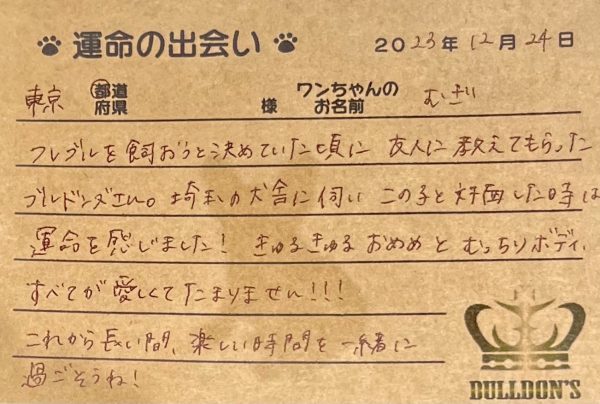 運命の出会い 2023年12月24日
東京 都道府県 様 ワンちゃんのお名前 むぎ
フレブルを飼おうと決めていた頃に 友人に教えてもらった
ブルドンズさん。埼玉の犬舎に伺い この子と対面した時は
運命を感じました! きゅるきゅる おめめと むっちりボディ、
すべてが 愛しくてたまりません!!!
これから長い間、楽しい時間を 一緒に
過ごそうね!
DULLDON'S